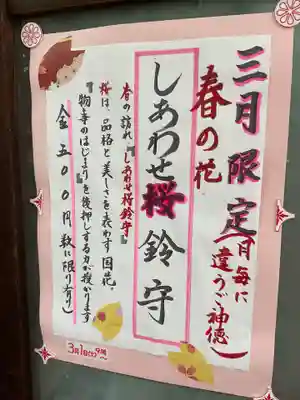 三月限定(月毎に違うご神徳)
春の花
しあわせ桜鈴守
春の訪れ『しあわせ桜鈴守』
桜は、品格と美しさを表わす国花。
『物事のはじまり』を後押しする力が授かります
金 五〇〇円(数に限り有り)
3月1日(土)